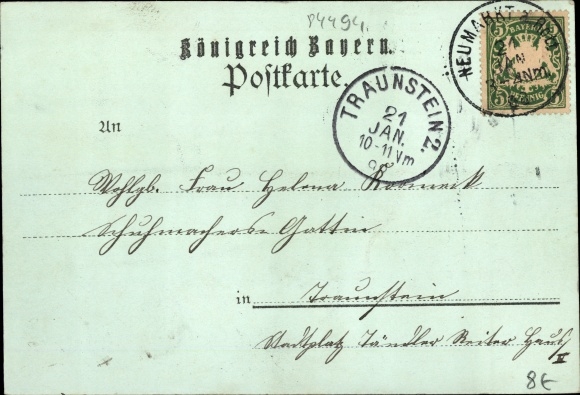 P4494.
Königreich Bayern.
Postkarte.
NEUMARKT
JAN
5 BAYERN 5
5 PFENNIG 5
TRAUNSTEIN 2.
21
JAN.
10-11 Vm
An
Wohlgb. Frau Helena
Schuhmachers-Gattin
in Traunstein
Stadtplatz Tändler Reiter Haus
II
8€